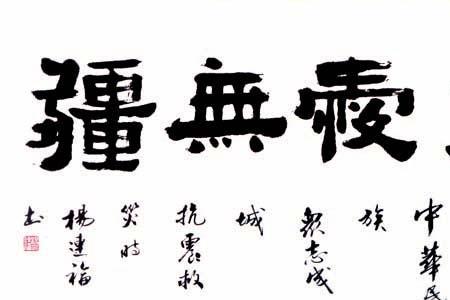 愛無疆
中華民
族
眾志成
城
抗震救
災時
楊連福
书